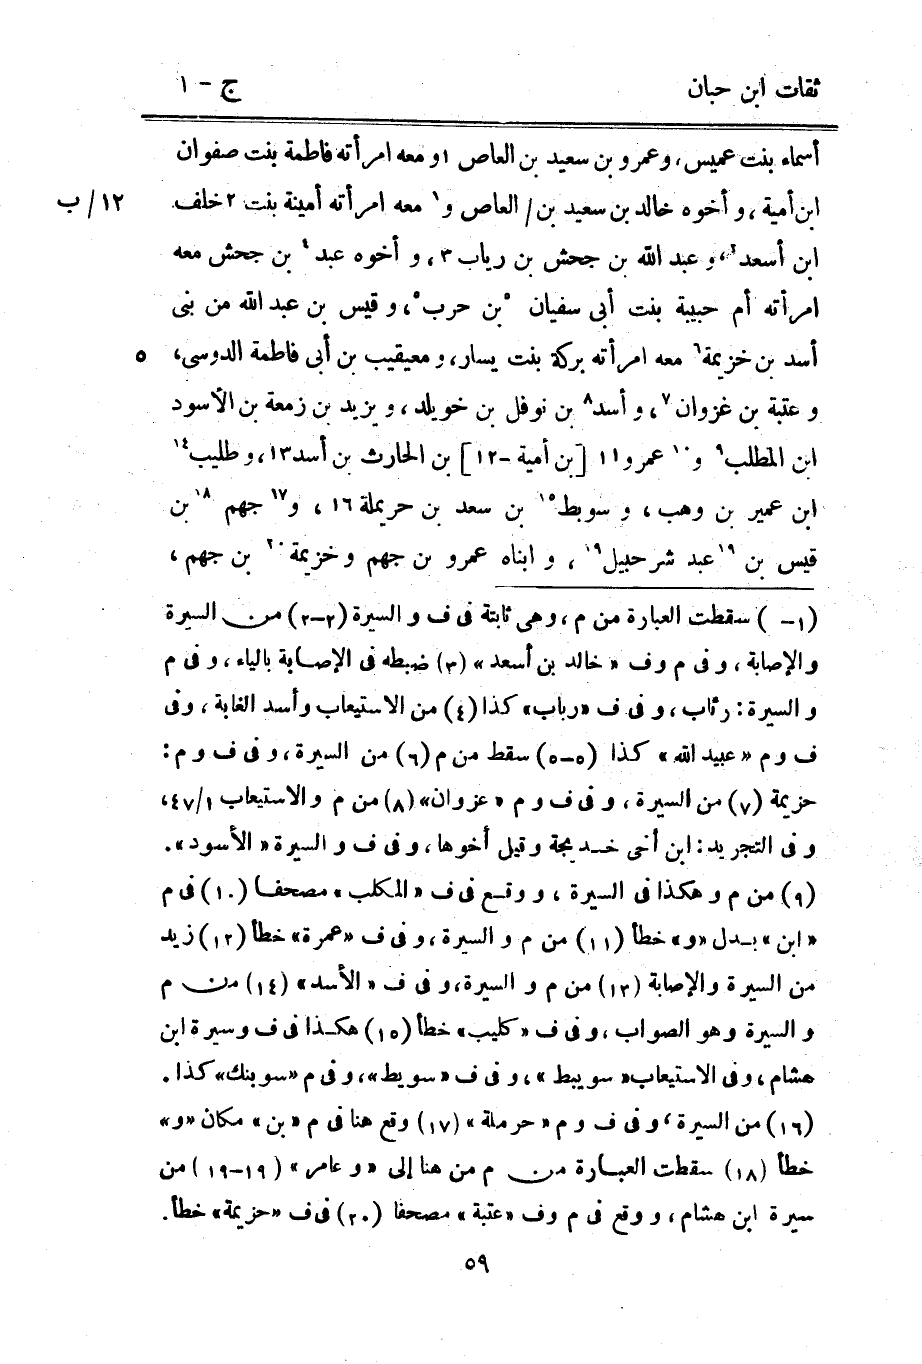 ثقات ابن حبان ج - ١
أسماء بنت عميس، وعمرو بن سعيد بن العاص ١و معه امرأته فاطمة بنت صفوان
ابن أمية، و أخوه خالد بن سعيد بن/ العاص و١ معه امرأته أمينة بنت ٢خلف ١٢/ ب
ابن أسعد٢، و عبد الله بن جحش بن رياب ٣، و أخوه عبد٤ بن جحش معه
امرأته أم حبيبة بنت أبى سفيان ٥بن حرب٥، و قيس بن عبد الله من بنى
أسد بن خزيمة٦ معه امرأته بركة بنت يسار، و معيقيب بن أبى فاطمة الدوسى، ٥
و عتبة بن غزوان ٧، و أسد٨ بن نوفل بن خويلد، و يزيد بن زمعة بن الأسود
ابن المطلب٩ و١٠ عمرو١١ [بن أمية -١٢] بن الحارث بن أسد١٣، و طليب١٤
ابن عمير بن وهب، و سويبط١٥ بن سعد بن حريملة ١٦، و١٧ جهم ١٨بن
قيس بن ١٩عبد شرحبيل١٩، و ابناه عمرو بن جهم و خزيمة٢٠ بن جهم،
(١- ) سقطت العبارة من م، وهى ثابتة فى ف و السيرة (٢-٢) من السيرة
والإصابة، و فى م وف « خالد بن أسعد » (٣) ضبطه فى الإصابة بالياء، و فى م
و السيرة: رئاب، و فى ف «رباب» كذا (٤) من الاستيعاب وأسد الغابة، وفى
ف و م « عبيد الله » كذا (٥-٥) سقط من م (٦) من السيرة، و فى ف و م:
حزيمة (٧) من السيرة، و فى ف و م « عزوان» (٨) من م والاستيعاب ٤٧/١،
و فى التجريد: ابن أخى خديجة وقيل أخوها، و فى ف و السيرة « الأسود».
(٩) من م و هكذا فى السيرة، و وقع فى ف « المكلب » مصحفا (١٠) فى م
« ابن » بدل «و» خطأ (١١) من م و السيرة، و فى ف «عمرة» خطأ (١٢) زيد
من السيرة والإصابة (١٣) من م و السيرة، و فى ف « الأسد» (١٤) من م
و السيرة وهو الصواب، و فى ف « كليب» خطأ (١٥) هكذا فى ف وسيرة ابن
هشام، وفى الاستيعاب« سويبط »، و فى ف «سويط»، و فى م «سوبنك» كذا.
(١٦) من السيرة، و فى ف و م« حرملة » (١٧) وقع هنا فى م « بن» مكان «و»
خطأ (١٨) سقطت العبارة من م من هنا إلى « و عامر » (١٩-١٩) من
سيرة ابن هشام، و وقع فى م وف «عتبة» مصحفا (٢٠) فى ف «حزيمة» خطأ.
٥٩